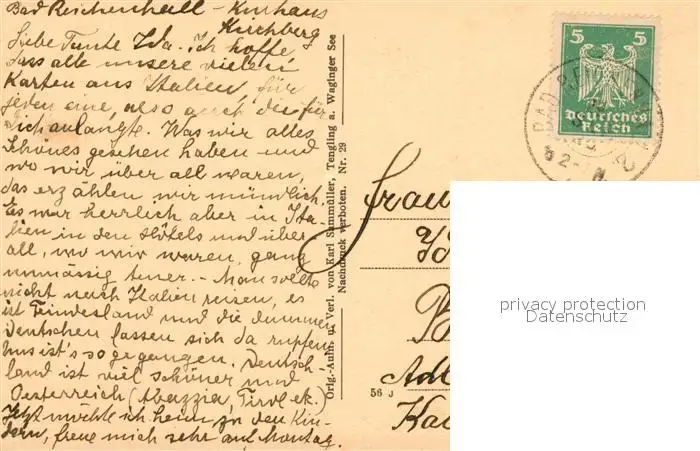 Bad Reichenhall - Kurhaus
Kirchberg
Liebe Tante Ida. Ich hoffe
dass alle unsere vielen
Karten aus Italien, für
jeden eine, also auch die für
Dich anlangte. Was wir alles
Schönes gesehen haben und
wo wir über all waren,
das erzählen wir mündlich.
Es war herrlich aber in Ita-
lien in den Hotels und über
all, wo wir waren, ganz
unmässig teuer. - Man sollte
nicht nach Italien reisen, es
ist Feindesland und die dummen
Deutschen lassen sich da rupfen
Uns ist's so gegangen. Deutsch-
land ist viel schöner und
Oesterreich (Abazzia, Tirol etc.)
Jetzt möchte ich heim zu den Kin-
dern, freue mich sehr auf Montag.
Orig.-Aufn. u. Verl. von Karl Sammüller, Tengling a. Waginger See
Nachdruck verboten. Nr. 29
5 5
Deutsches
Reich
BAD
Frau
Adl
56 J
privacy protection
Datenschutz